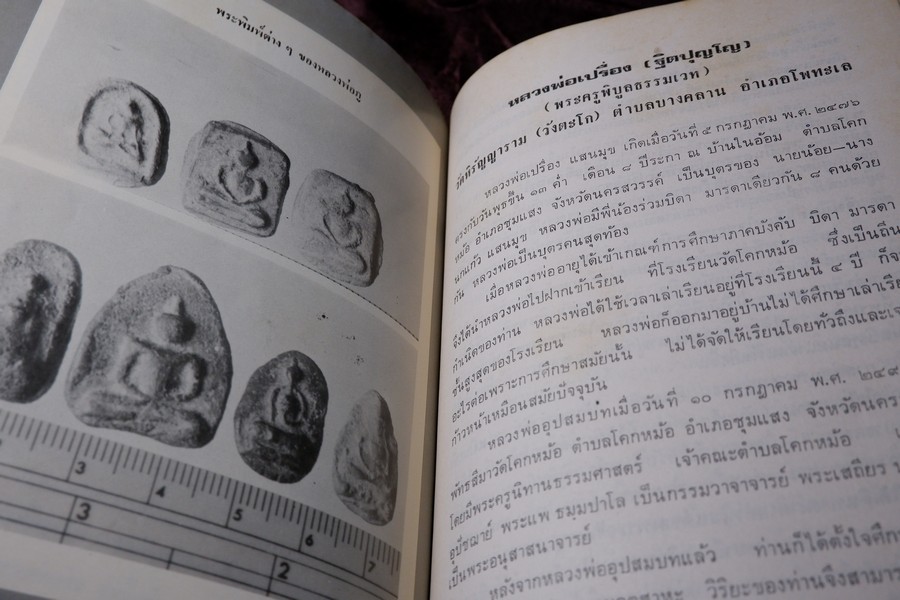 พระพิมพ์ต่าง ๆ ของหลวงพ่อภู
3
4
5
6
7
3
2
หลวงพ่อเปรื่อง (ฐิตปุญโญ)
(พระครูพิบูลธรรมเวท)
วัดหิรัญญาราม (วังตะโก) ตำบลบางคลาน อำเภอโพทะเล
หลวงพ่อเปรื่อง แสนมุข เกิดเมื่อวันที่ ๕ กรกฎาคม พ.ศ. ๒๔๗๖
ตรงกับวันพุธขึ้น ๑๓ ค่ำ เดือน ๘ ปีระกา ณ บ้านในอ้อม ตำบลโคก
หม้อ อำเภอชุมแสง จังหวัดนครสวรรค์ เป็นบุตรของ นายน้อย–นาง
นกแก้ว แสนมุข หลวงพ่อมีพี่น้องร่วมบิดา มารดาเดียวกัน ๘ คนด้วย
กัน หลวงพ่อเป็นบุตรคนสุดท้อง
เมื่อหลวงพ่ออายุได้เข้าเกณฑ์การศึกษาภาคบังคับ บิดา มารดา
จึงได้นำหลวงพ่อไปฝากเข้าเรียน ที่โรงเรียนวัดโคกหม้อ ซึ่งเป็นถิ่น
กำเนิดของท่าน หลวงพ่อได้ใช้เวลาเล่าเรียนอยู่ที่โรงเรียนนี้ ๔ ปี ก็จบ
ชั้นสูงสุดของโรงเรียน หลวงพ่อก็ออกมาอยู่บ้านไม่ได้ศึกษาเล่าเรีย
อะไรต่อเพราะการศึกษาสมัยนั้น ไม่ได้จัดให้เรียนโดยทั่วถึงและเจ
ก้าวหน้าเหมือนสมัยปัจจุบัน
หลวงพ่ออุปสมบทเมื่อวันที่ ๑๐ กรกฎาคม พ.ศ. ๒๔๙
พัทธสีมาวัดโคกหม้อ ตำบลโคกหม้อ อำเภอชุมแสง จังหวัดนคร
โดยมีพระครูนิทานธรรมศาสตร์ เจ้าคณะตำบลโคกหม้อ
อุปัชฌาย์ พระแพ ธมฺมปาโล เป็นกรรมวาจาจารย์ พระเสถียร
เป็นพระอนุสาสนาจารย์
หลังจากหลวงพ่ออุปสมบทแล้ว ท่านก็ได้ตั้งใจศึก
วิริยะของท่านจึงสามาร